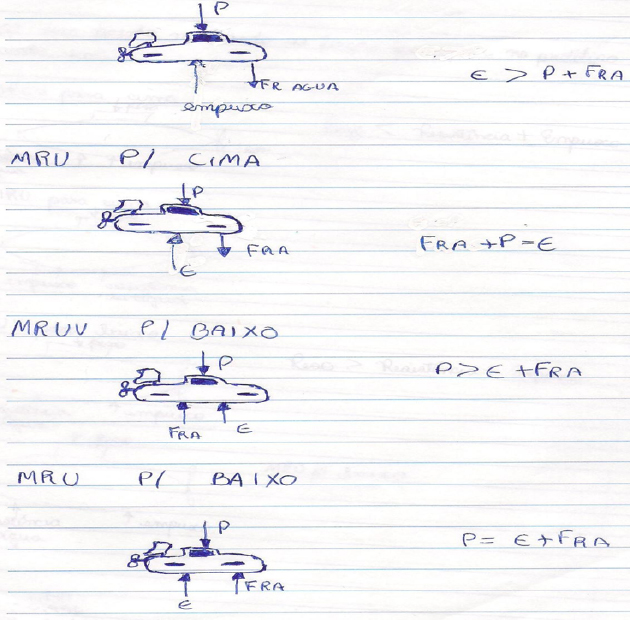 P
FR AGUA
empuxo
E > P + FRA
MRU P/ CIMA
P
FRA
E
FRA + P = E
MRUV P/ BAIXO
P
FRA E
P > E + FRA
MRU P/ BAIXO
P
FRA
E
P = E + FRA